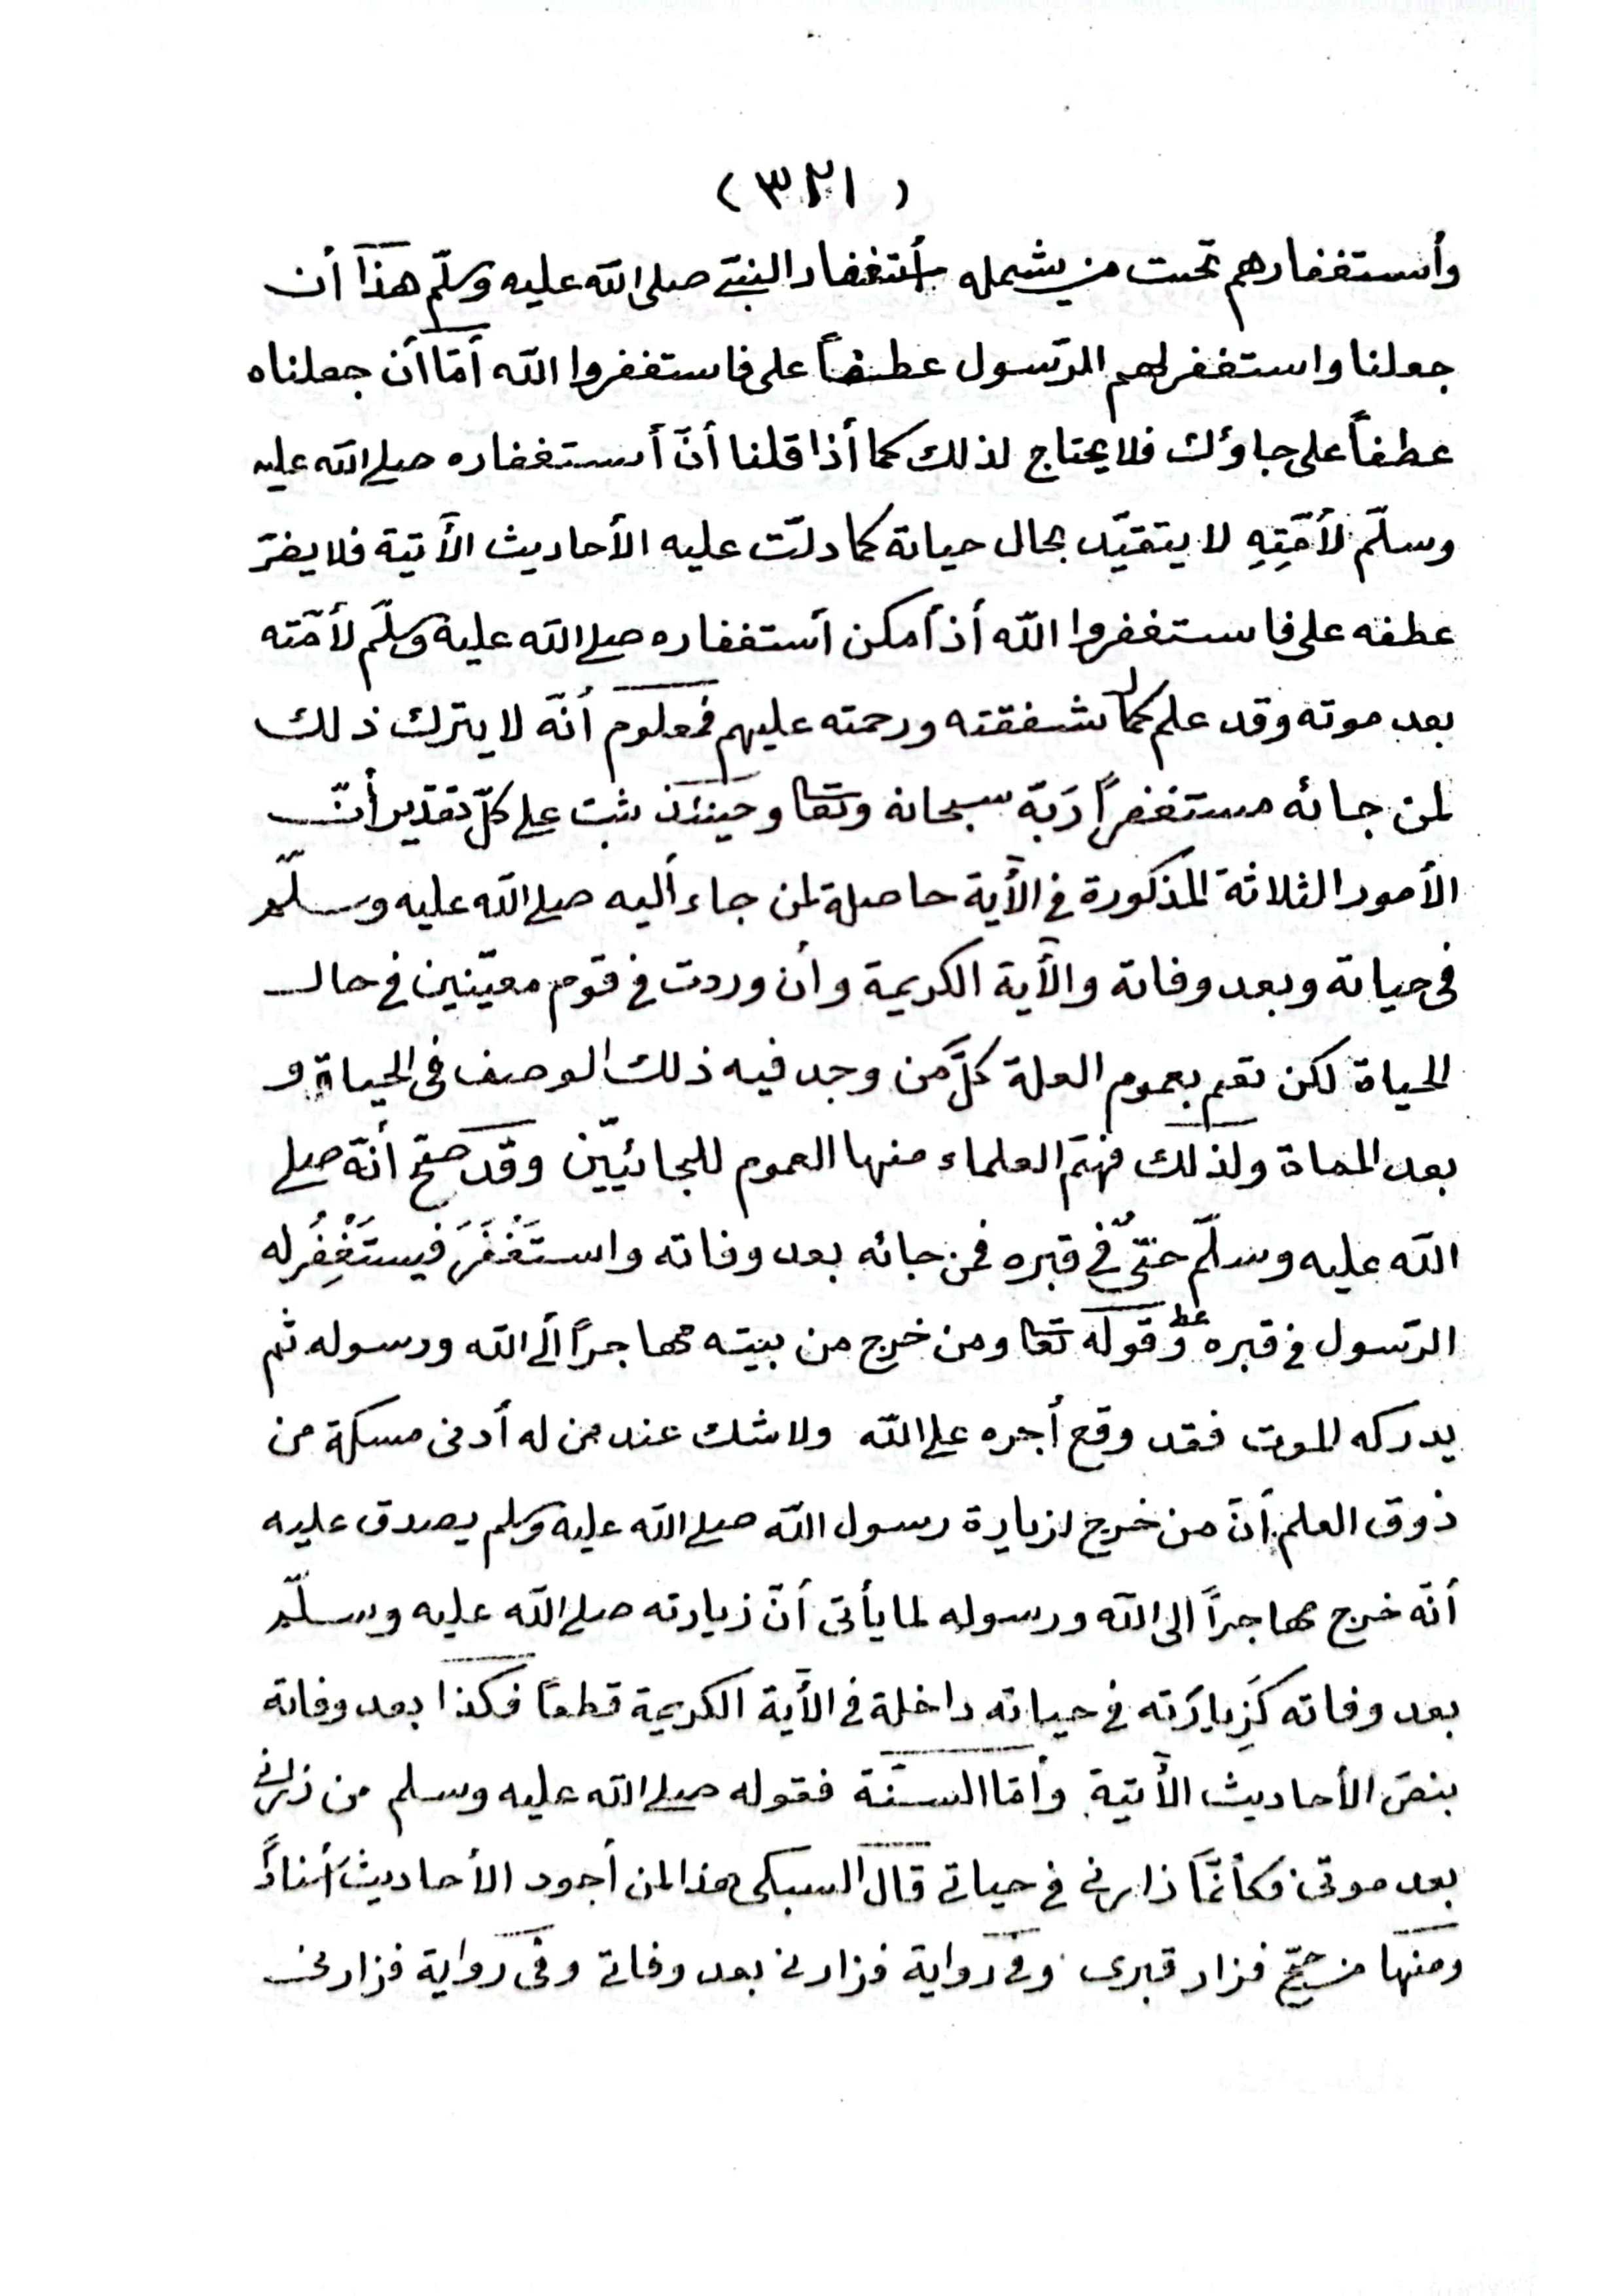 (٣٢١)
وأستغفارهم تحت من يشمله أستغفار النبيّ صلى الله عليه وسلّم هذا أن
جعلنا واستغفر لهم الرّسول عطفاً على فاستغفروا الله أمّا أن جعلناه
عطفاً على جاؤك فلا يحتاج لذلك كما أذا قلنا أنّ أستغفاره صلى الله عليه
وسلّم لأمّتِهِ لا يتقيّد بحال حياته كما دلّت عليه الأحاديث الأتية فلا يضرّ
عطفه على فاستغفروا الله أذ أمكن أستغفاره صلى الله عليه وسلّم لأمّته
بعد موته وقد علم كمال شفقته ورحمته عليهم فمعلوم أنّه لا يترك ذلك
لمن جائه مستغفراً رَبّه سبحانه وتعا وحينئذ ثبت على كلّ تقدير أنّ
الأمور الثلاثة المذكورة في الأية حاصلة لمن جاء أليه صلى الله عليه وسلّم
فى حياته وبعد وفاته والأية الكريمة وأن وردت في قوم معيّنين في حال
الحياة لكن تعم بعموم العلة كلَّ من وجد فيه ذلك الوصف فى الحياة و
بعد المماة ولذلك فهم العلماء منها العموم للجائيّين وقد صحّ أنّه صلى
الله عليه وسلّم حىّ في قبره فمن جائه بعد وفاته واستَغْفَرَ فيستَغْفِرُ له
الرّسول في قبره وقوله تعا ومن خرج من بيته مهاجراً ألى الله ورسوله ثم
يدركه الموت فقد وقع أجره على الله ولا شك عند من له أدنى مسكة من
ذوق العلم أنّ من خرج لزيارة رسول الله صلى الله عليه وسلم يصدق عليه
أنّه خرج مهاجراً الى الله ورسوله لما يأتى أنّ زيارته صلى الله عليه وسلّم
بعد وفاته كَزِيارَته في حياته داخلة في الأية الكريمة قطعاً فكذا بعد وفاته
بنصّ الأحاديث الأتية وأمّا السنّة فقوله صلى الله عليه وسلم من زارني
بعد موتى فكأنّما زارنى في حياتي قال السبكى هذا لمن أجود الأحاديث أسناداً
ومنها من حجّ فزار قبرى وفي رواية فزارني بعد وفاتي وفى رواية فزارني